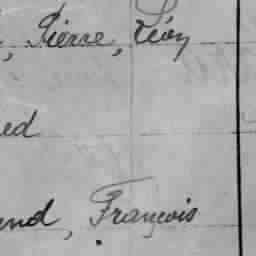 , Pierre, Léon
ed
end, François